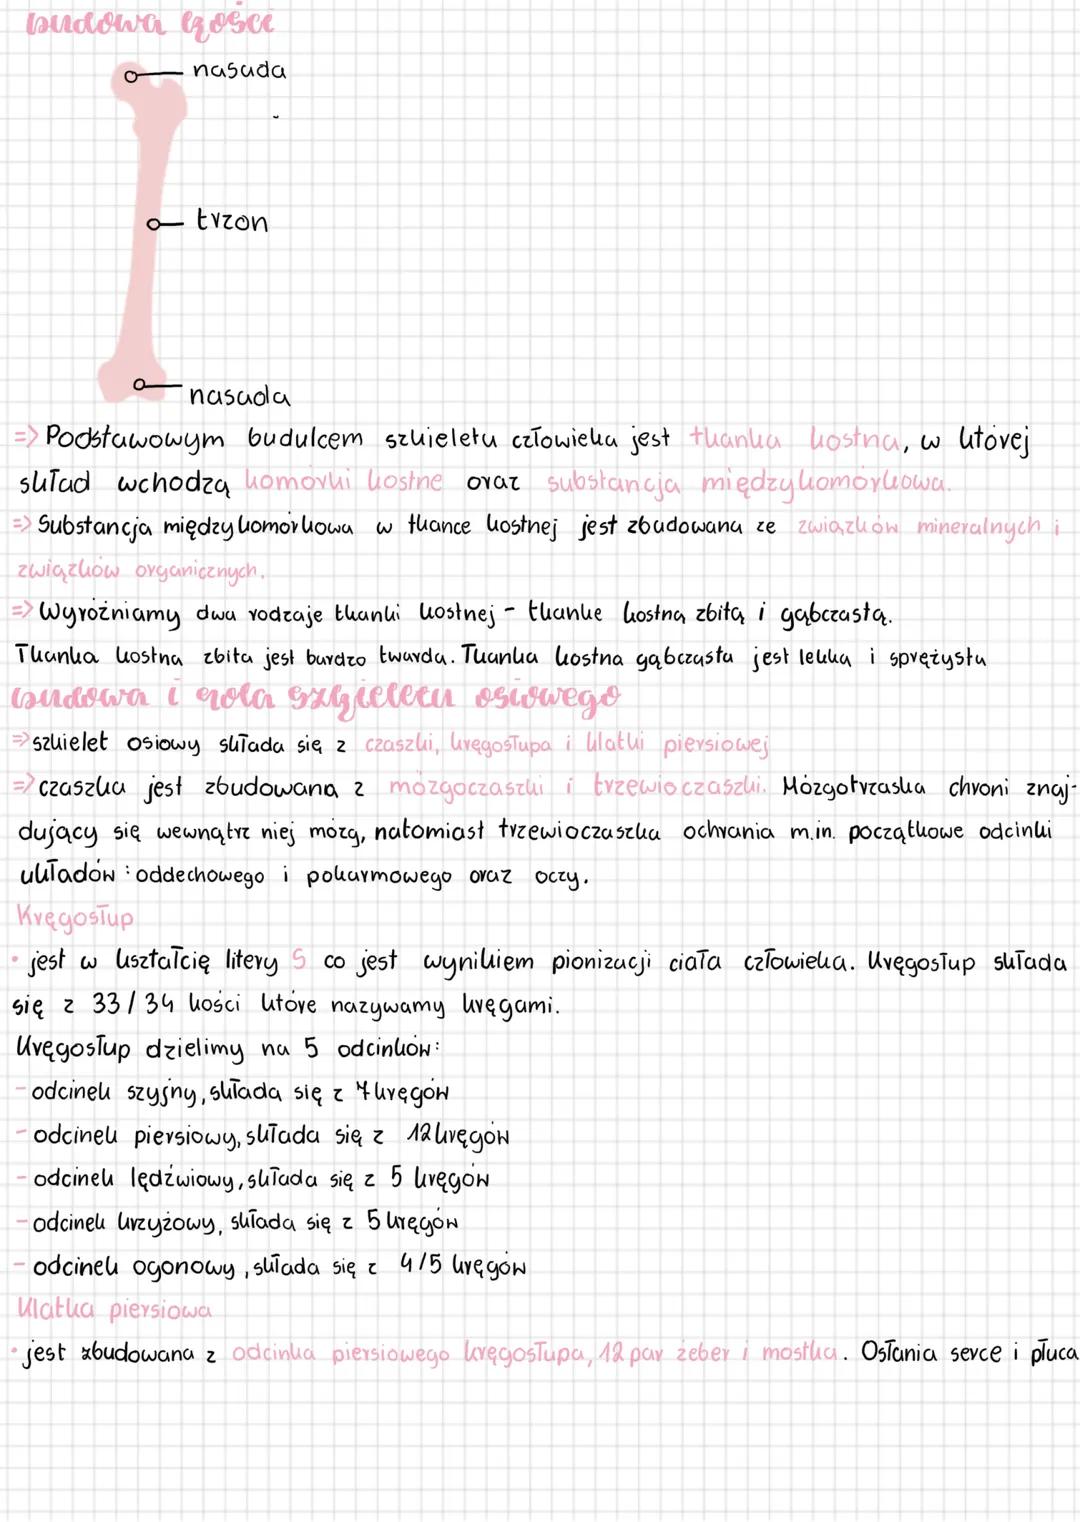 budowa kości
nasada
trzon
nasada
=> Podstawowym budulcem szkieletu człowieka jest tkanka kostna, w której
skład wchodzą komórki kostne oraz substancja międzykomórkowa.
=> Substancja międzykomórkowa w tkance kostnej jest zbudowana ze związków mineralnych i
związków organicznych.
=> Wyróżniamy dwa rodzaje tkanki kostnej - tkanke kostną zbitą i gąbczastą.
Tkanka kostna zbita jest bardzo twarda. Tkanka kostna gąbczasta jest lekka i sprężysta
budowa i rola szkieletu osiowego
=> szkielet osiowy składa się z czaszki, kręgosłupa i klatki piersiowej
=> czaszka jest zbudowana z mózgoczaszki i trzewioczaszki. Mózgotrzaska chroni znaj-
dujący się wewnątrz niej mózg, natomiast trzewioczaszka ochrania m.in. początkowe odcinki
układów : oddechowego i pokarmowego oraz oczy.
Kręgosłup
• jest w kształcię litery S co jest wynikiem pionizacji ciała człowieka. Kręgosłup składa
się z 33/34 kości które nazywamy kręgami.
Kręgosłup dzielimy na 5 odcinków:
- odcinek szyjny, składa się z 7 kręgów
- odcinek piersiowy, składa się z 12 kręgów
- odcinek lędźwiowy, składa się z 5 kręgów
- odcinek krzyżowy, składa się z 5 kręgów
- odcinek ogonowy, składa się z 4/5 kręgów
Klatka piersiowa
• jest zbudowana z odcinka piersiowego kręgosłupa, 12 par żeber i mostka. Osłania serce i płuca